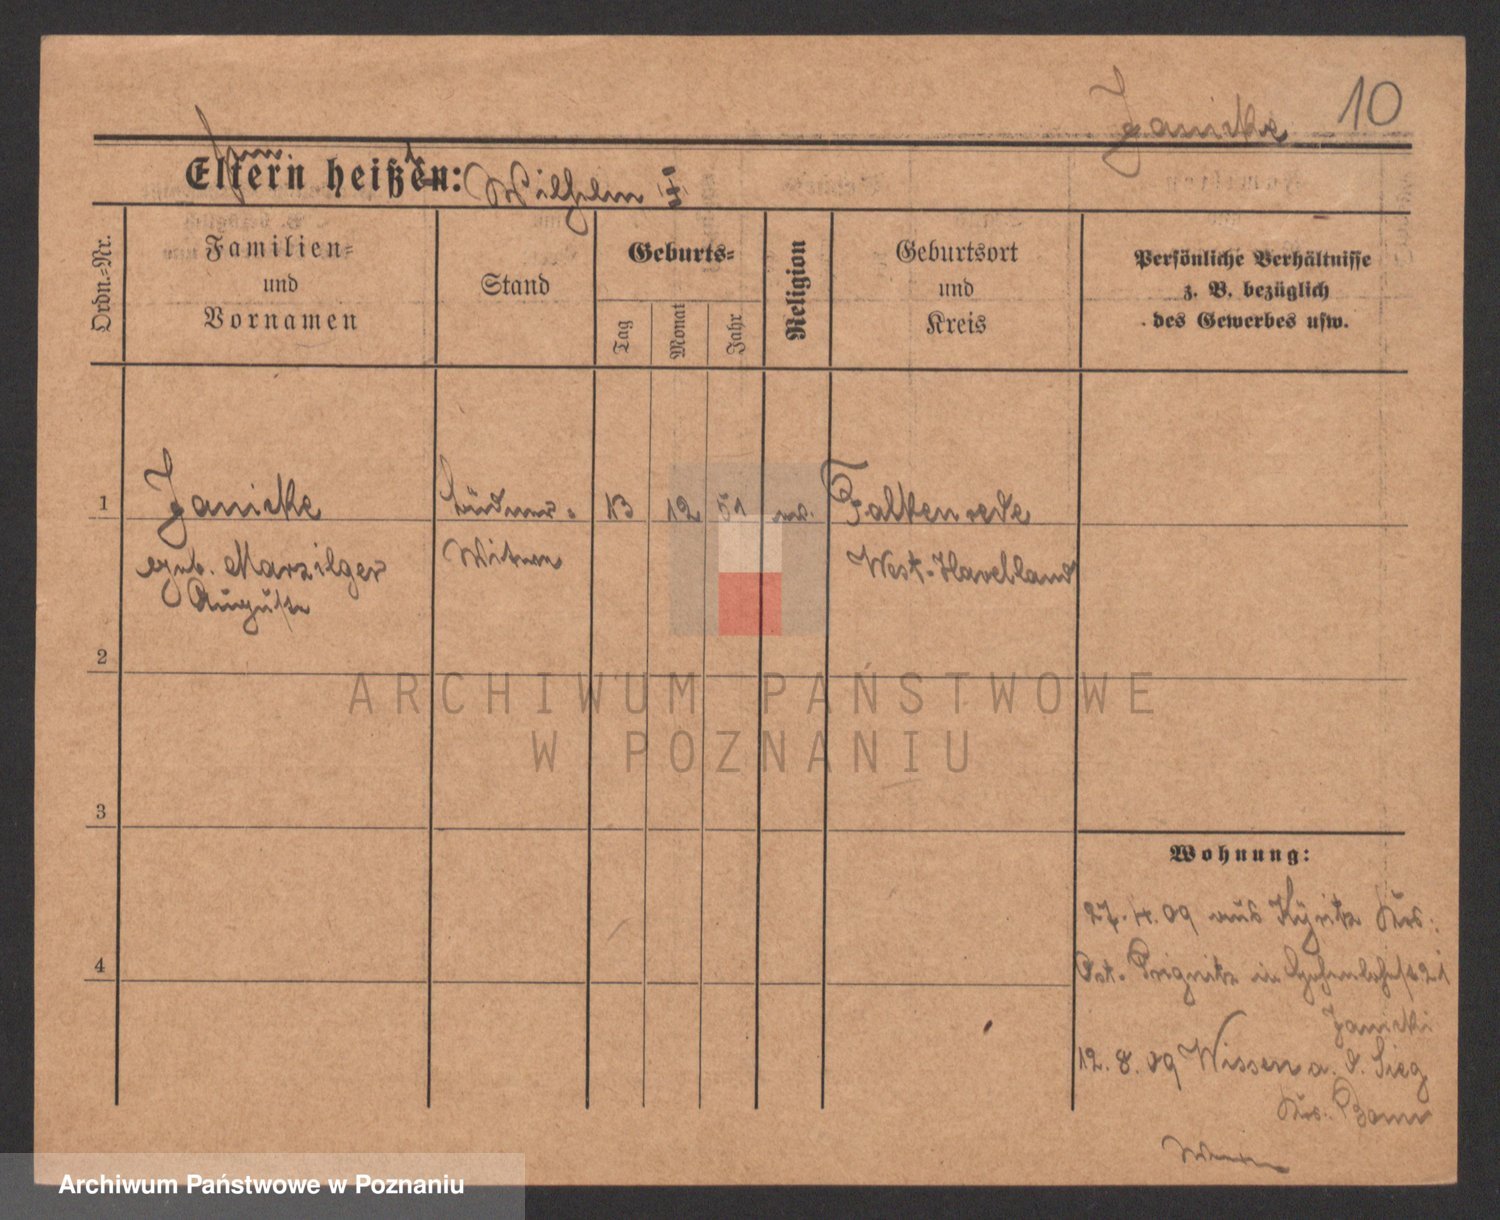 Janicke 10
Eltern heißen: Wilhelm
Ordn.-Nr.
Familien-
und
Vornamen
Stand
Geburts-
Tag
Monat
Jahr
Religion
Geburtsort
und
Kreis
Persönliche Verhältnisse
z. B. bezüglich
des Gewerbes usw.
1 Janicke Büdner- 13 12 51 Falkenrede
geb. Marzilger Witwe West-Havelland
Auguste
2
3
4
Wohnung:
27.4.09 aus Kyritz Krs.
Ost-Prignitz in 21
Janicki
12.8.09 Wissen a. d. Sieg
Krs. Bonn
ARCHIWUM PAŃSTWOWE
W POZNANIU
Archiwum Państwowe w Poznaniu